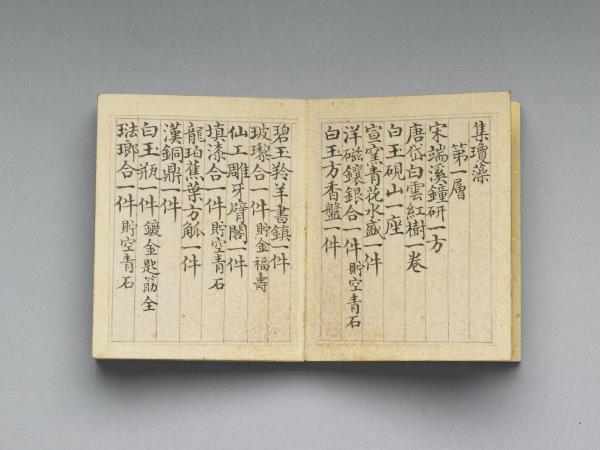 集瓊藻
第一層
宋端溪鐘研一方
唐岱白雲紅樹一卷
白玉硯山一座
宣窯青花水盛一件
洋磁鑲銀合一件 貯空青石
白玉方香盤一件
碧玉羚羊書鎮一件
玻瓈合一件 貯金福壽
仙工雕牙臂閣一件
填漆合一件 貯空青石
龍珀蕉葉方觚一件
漢銅鼎一件
白玉瓶一件 鍍金匙筯全
琺瑯合一件 貯空青石